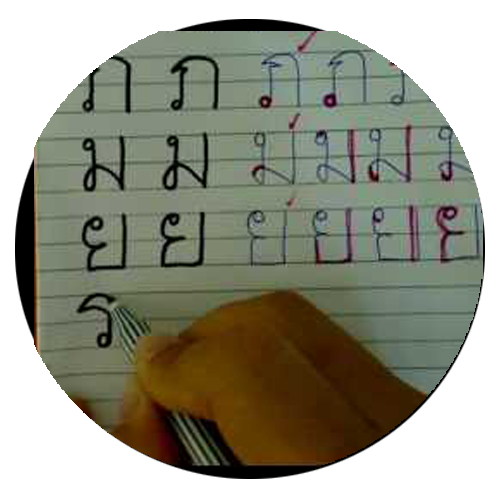 ภ ภ ภ ภ
ม ม ม ม ม ม
ย ย ย ย ย ย
ร